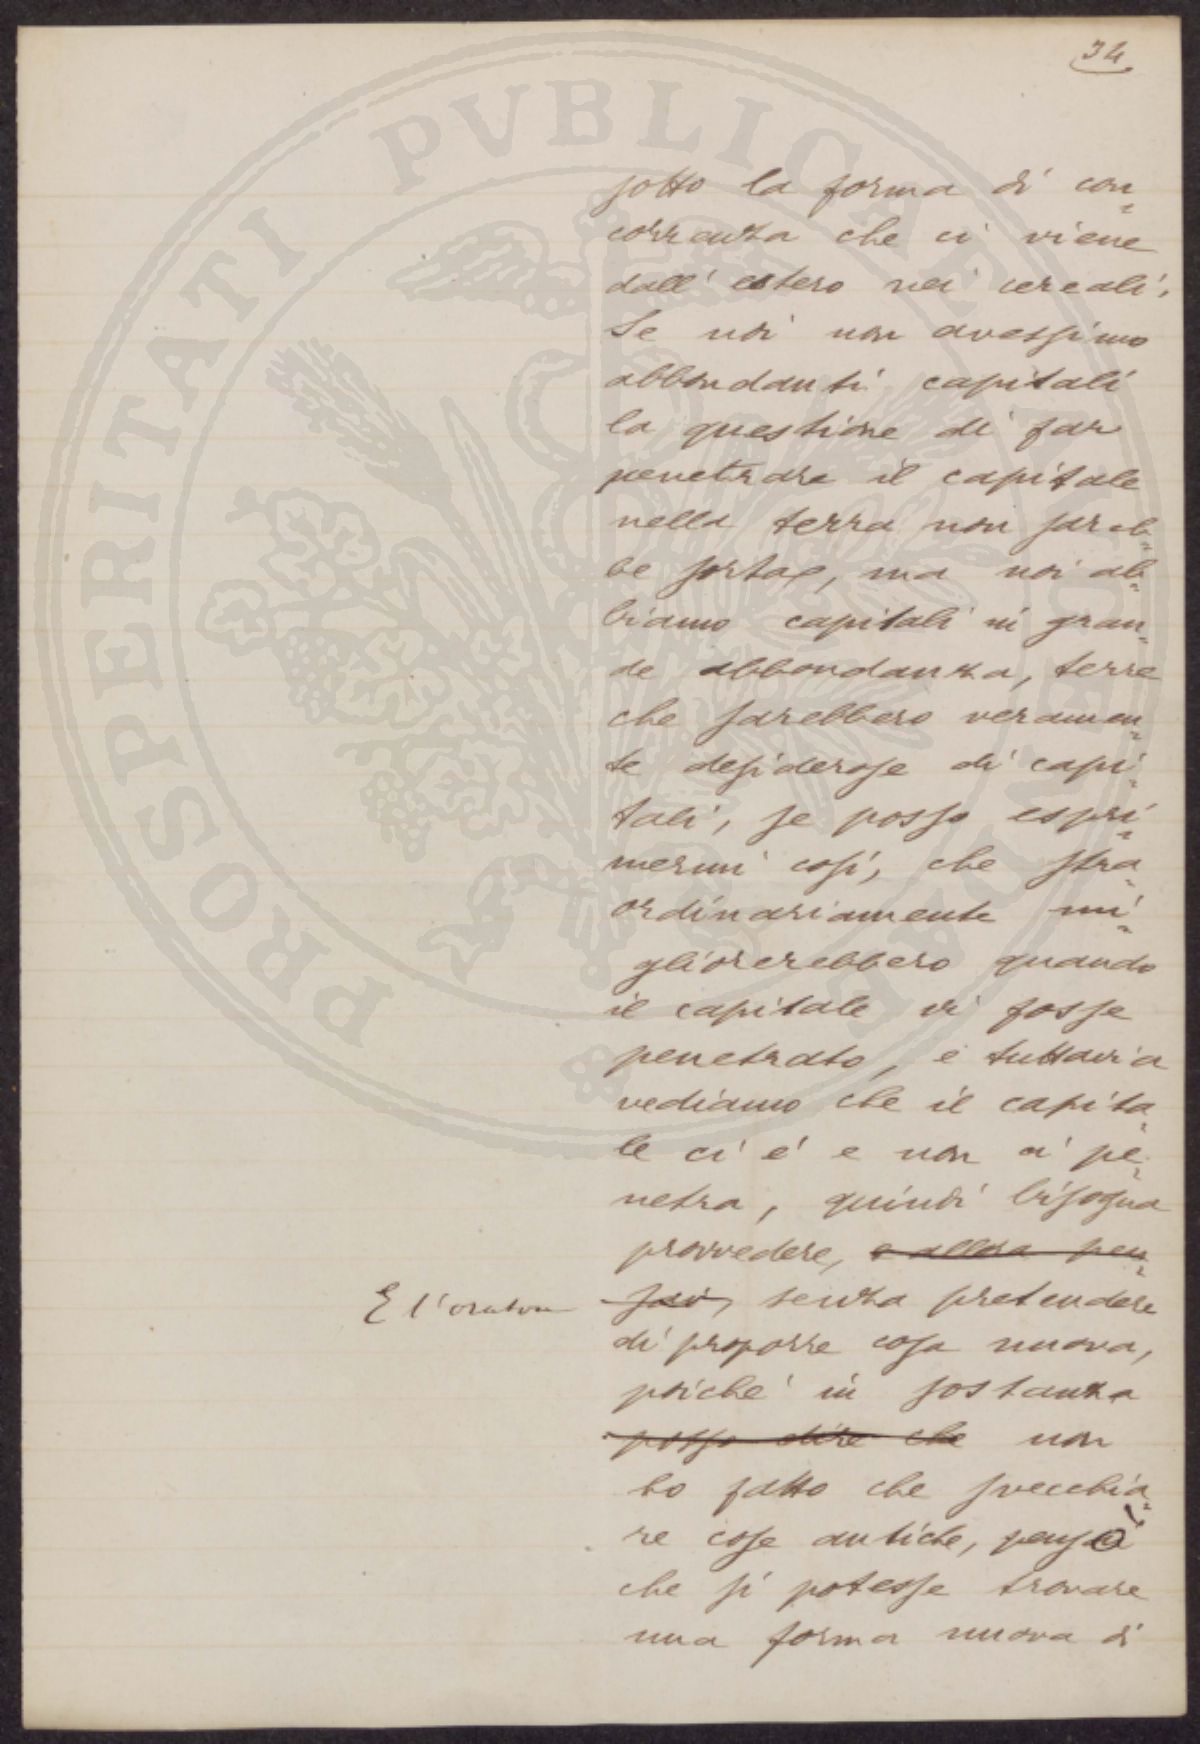 34
sotto la forma di con=
correnza che ci viene
dall'estero nei cereali.
Se noi non avessimo
abbondanti capitali
la questione di far
penetrare il capitale
nella terra non sareb=
be sorta, ma noi ab=
biamo capitali in gran=
de abbondanza, terre
che sarebbero veramen=
te desiderose di capi=
tali, se posso espri=
mermi così, che stra=
ordinariamente mi=
gliorerebbero quando
il capitale vi fosse
penetrato, e tuttavia
vediamo che il capita=
le ci é e non ci pe=
netra, quindi bisogna
provvedere, e allora pen=
sai, senza pretendere
E l'oratore
di proporre cosa nuova,
poiché in sostanza
posso dire che non
ho fatto che svecchia=
re cose antiche, pensò
che si potesse trovare
una forma nuova di
PROSPERITATI PVBLICAE